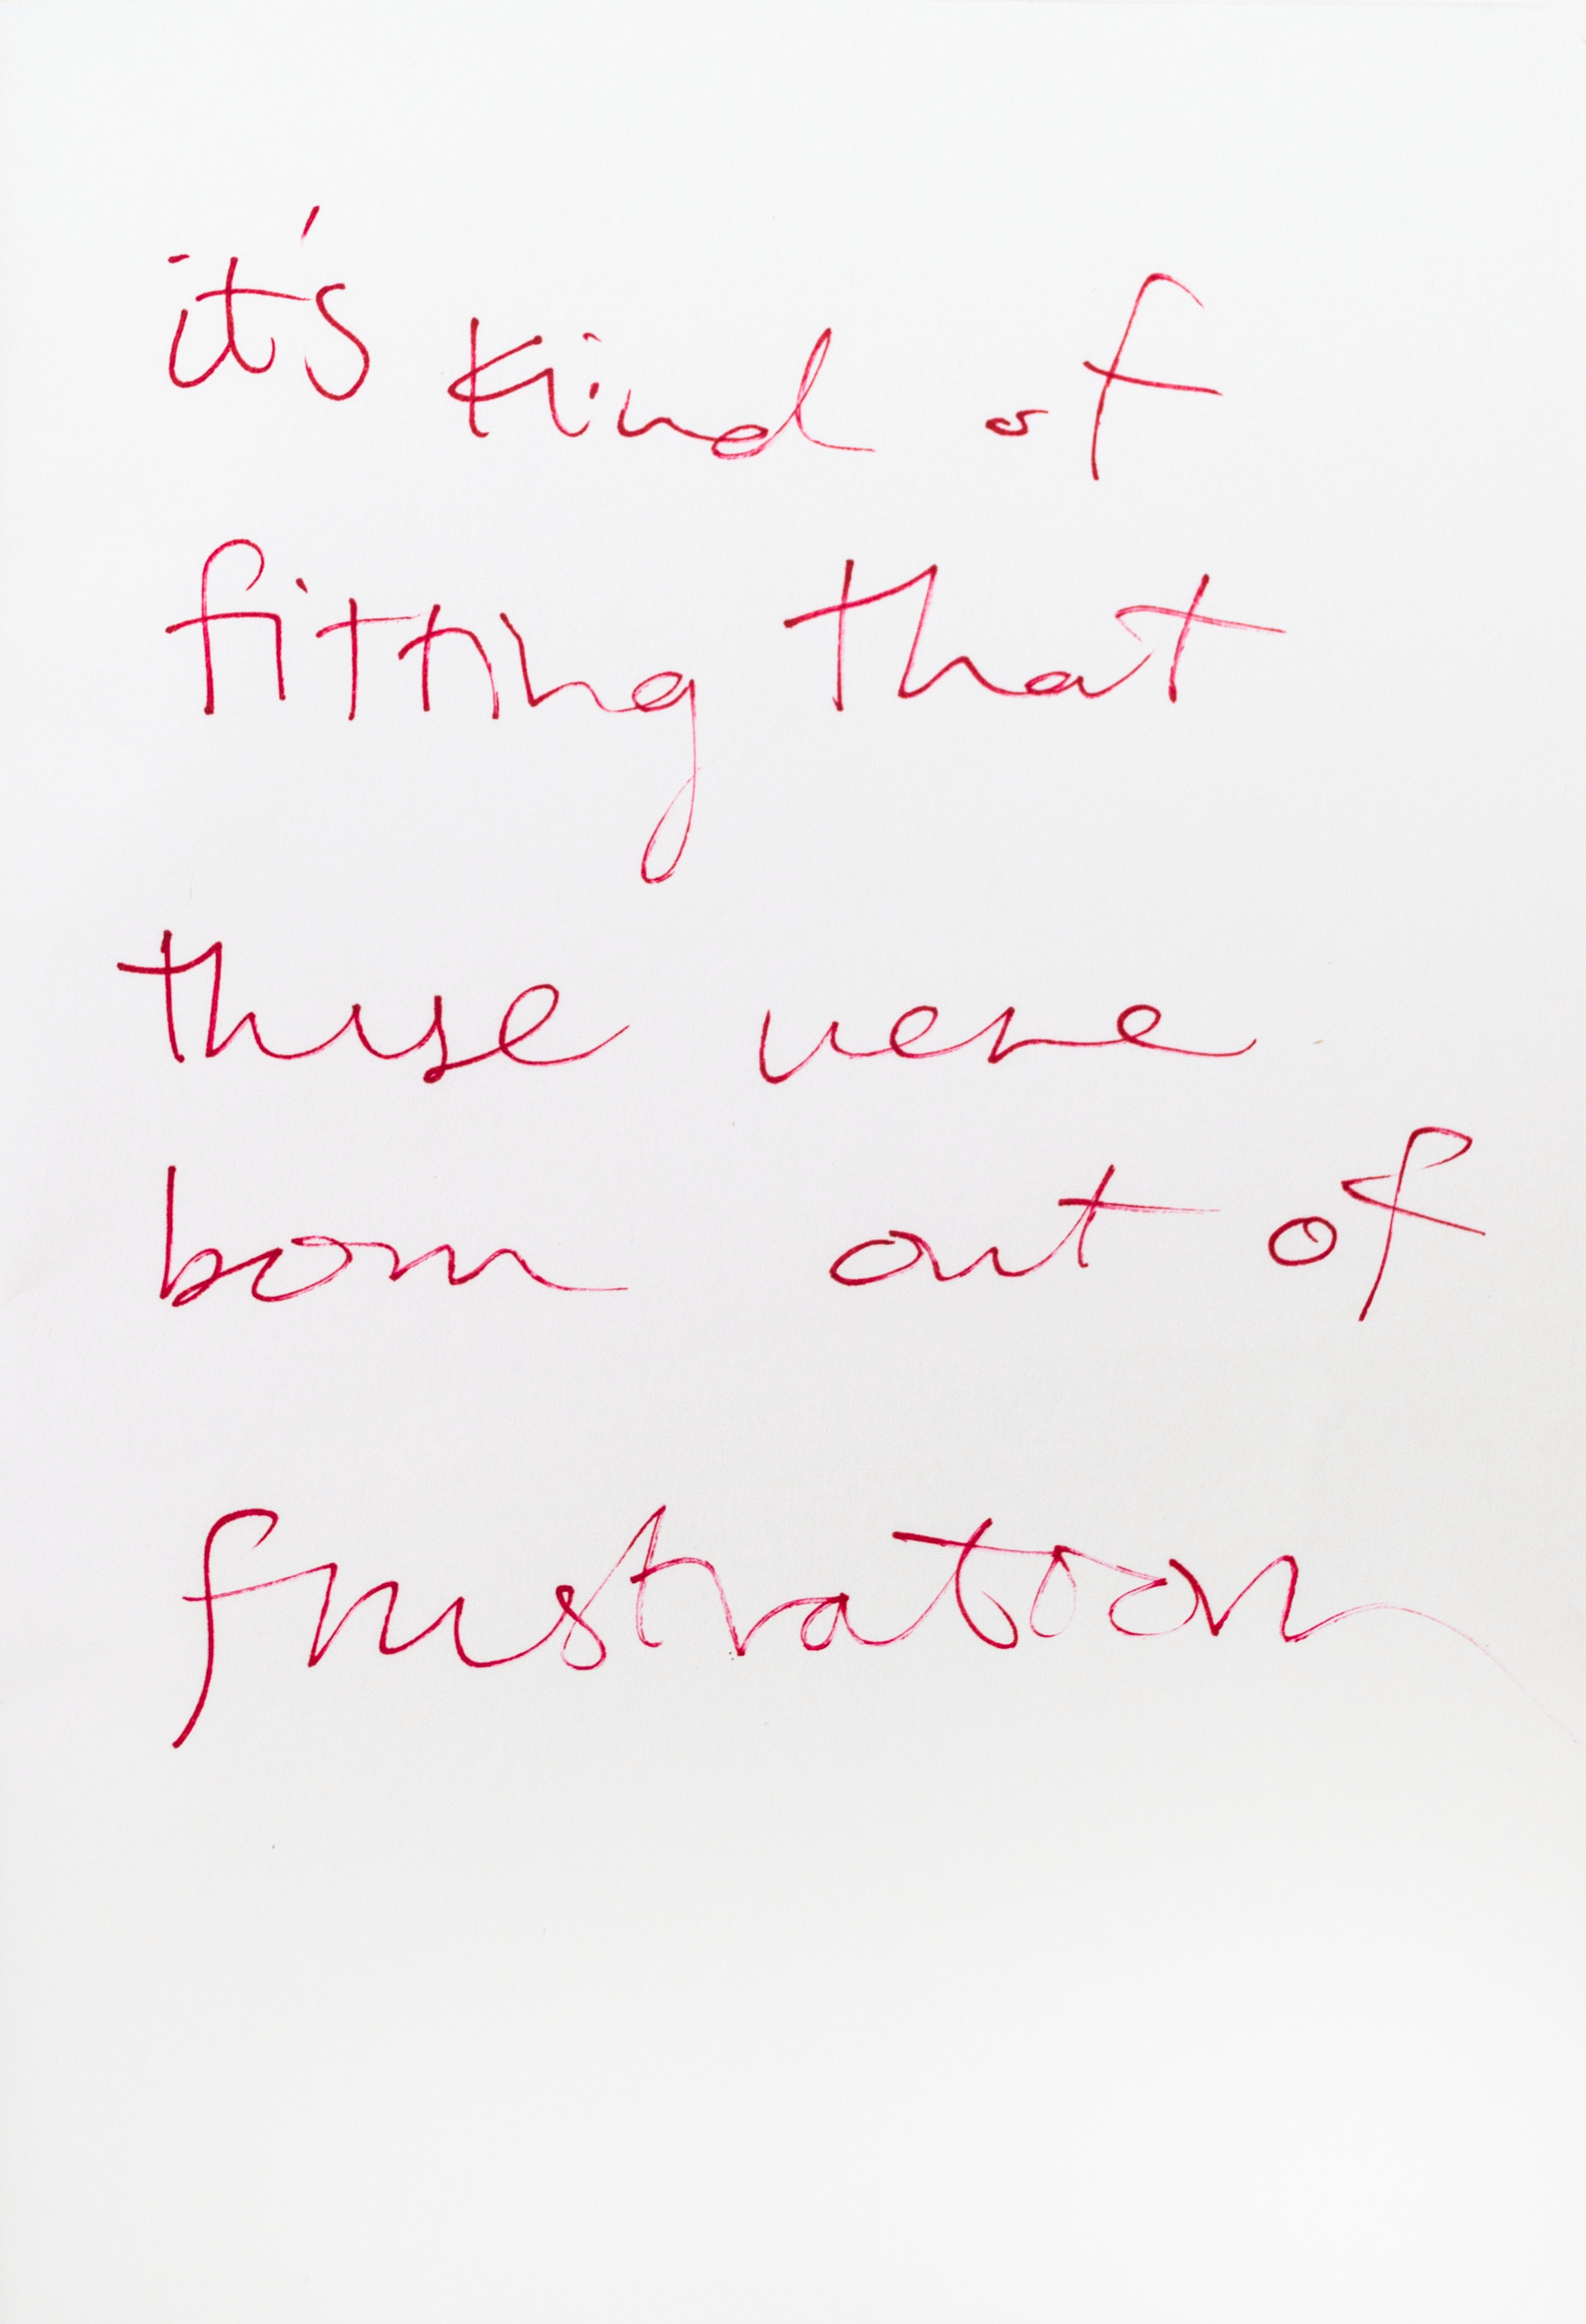 it's kind of
fitting that
these were
born out of
frustration